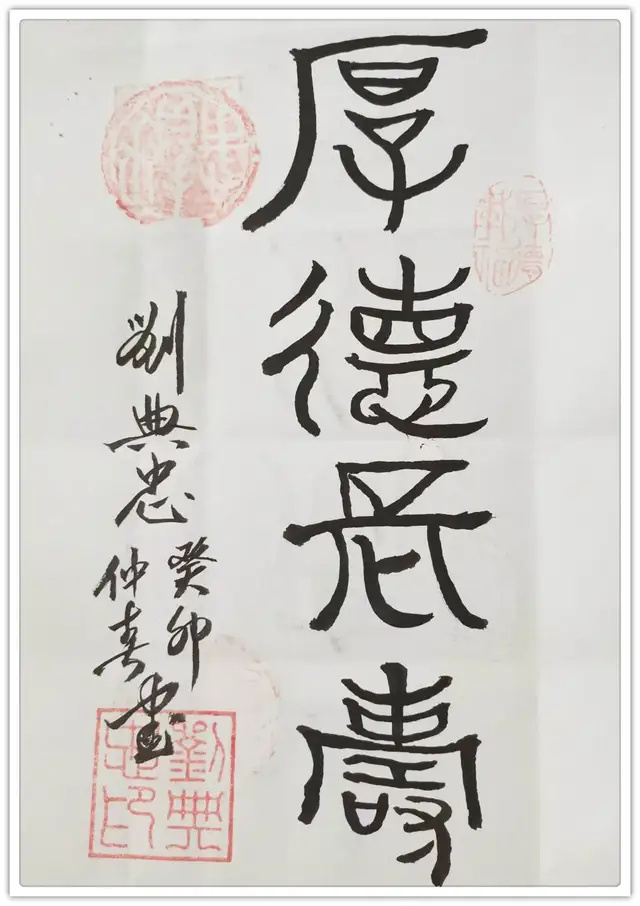 厚德長壽
劉典忠
癸卯
仲春書
劉典
忠印